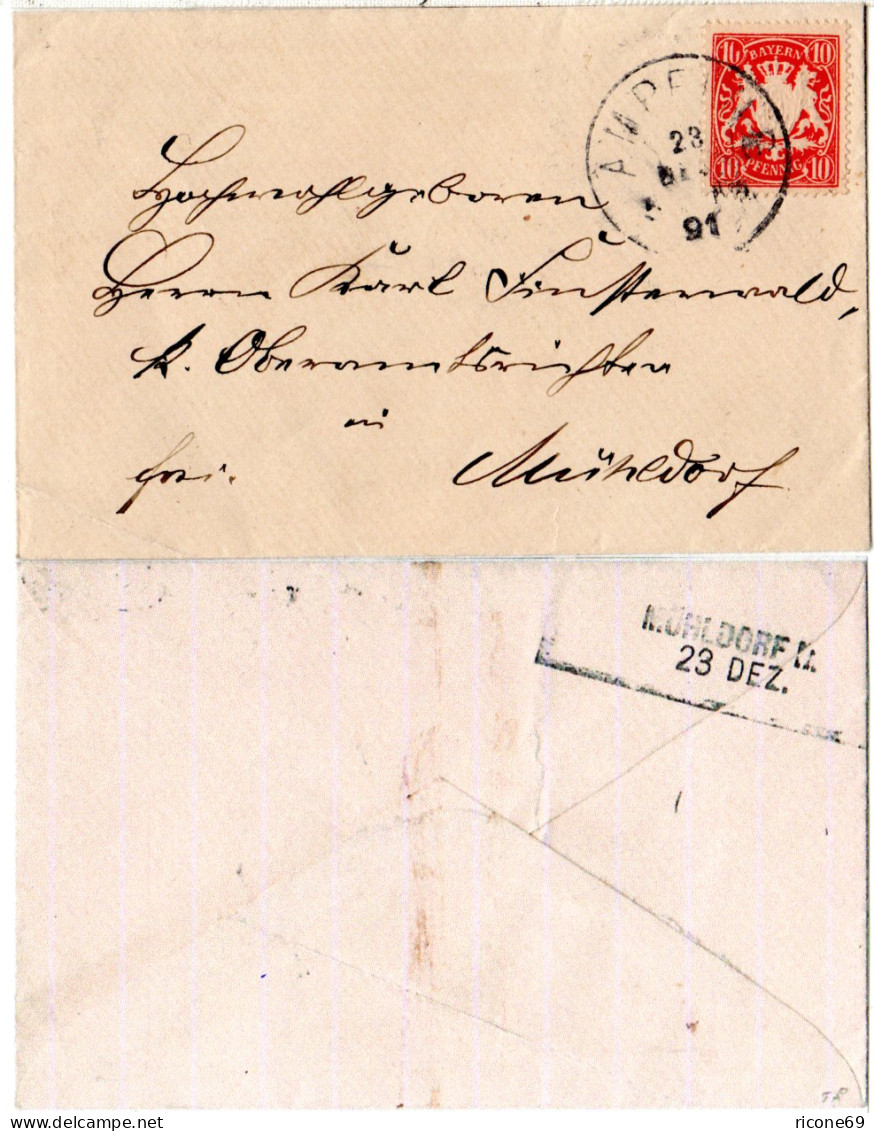 10 BAYERN 10
10 PFENNIG 10
AMPFING
23
DEZ
91
Hochwohlgeboren
Herrn Karl Finsterwald,
k. Oberamtsrichter
in
frei. Mühldorf
MÜHLDORF II.
23 DEZ.
delcampe.net
ricone69